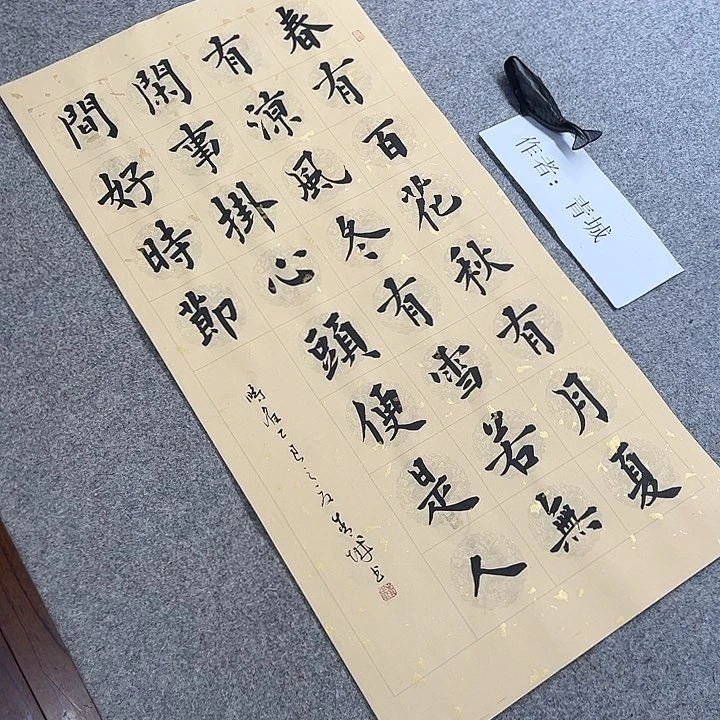 春有百花秋有月夏
有涼風冬有雪若無
閑事掛心頭便是人
間好時節
時 乙巳之 青城
作者：青城